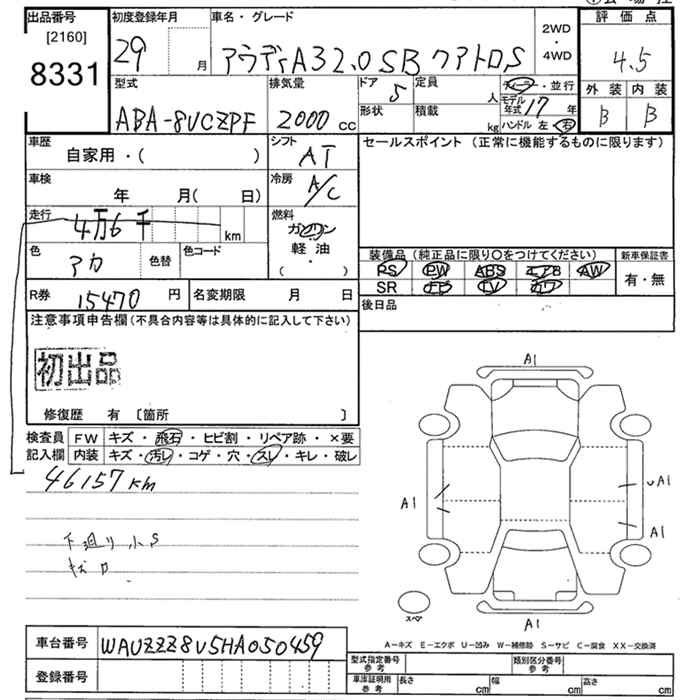 出品番号
[2160]
8331
初度登録年月
29 月
車名・グレード
アウディA3 2.0SBクアトロS
2WD
・
4WD
評価点
4.5
外装 内装
B B
型式
ABA-8VCZPF
排気量
2000 cc
ドア
5
形状
定員
人
積載
kg
ディーラー・並行
モデル年式 17 年
ハンドル 左・右
車歴
自家用・( )
シフト
AT
セールスポイント (正常に機能するものに限ります)
車検
年 月( 日)
冷房
A/C
走行
4万6千 km
燃料
ガソリン
・
軽油
・
( )
色
アカ
色替
色コード
装備品 (純正品に限り○をつけてください)
新車保証書
PS PW ABS エアB AW
有・無
SR TV カワ
R券 15470 円
名変期限 月 日
後日品
注意事項申告欄(不具合内容等は具体的に記入して下さい)
初出品
修復歴 有 [箇所 ]
検査員記入欄
FW キズ・飛石・ヒビ割・リペア跡・×要
内装 キズ・汚レ・コゲ・穴・スレ・キレ・破レ
46157km
下廻り小S
A1
A1
A1
A1
A1
スペア
A-キズ E-エクボ U-凹み W-補修跡 S-サビ C-腐食 XX-交換済
車台番号 WAUZZZ8V5HA050459
登録番号
型式指定番号
参考
類別区分番号
参考
車庫証明用
参考
長さ cm 幅 cm 高さ cm